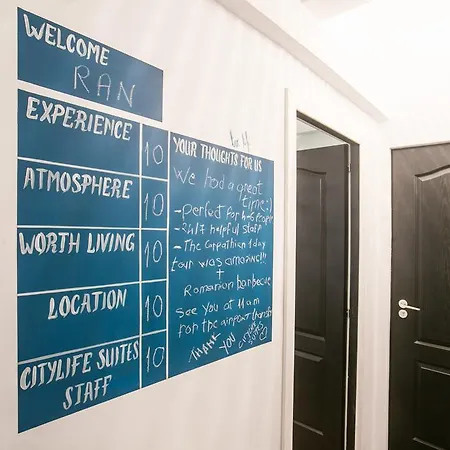 WELCOME
RAN
EXPERIENCE 10
ATMOSPHERE 10
WORTH LIVING 10
LOCATION 10
CITYLIFE SUITES
STAFF 10
YOUR THOUGHTS FOR US
We had a great
time :)
- perfect for
- 24/7 helpful staff
- The Carpathian 1 day
tour was amazing!!!
+
Romanian barbecue
See you at 11am
for the airport transfer
THANK
YOU